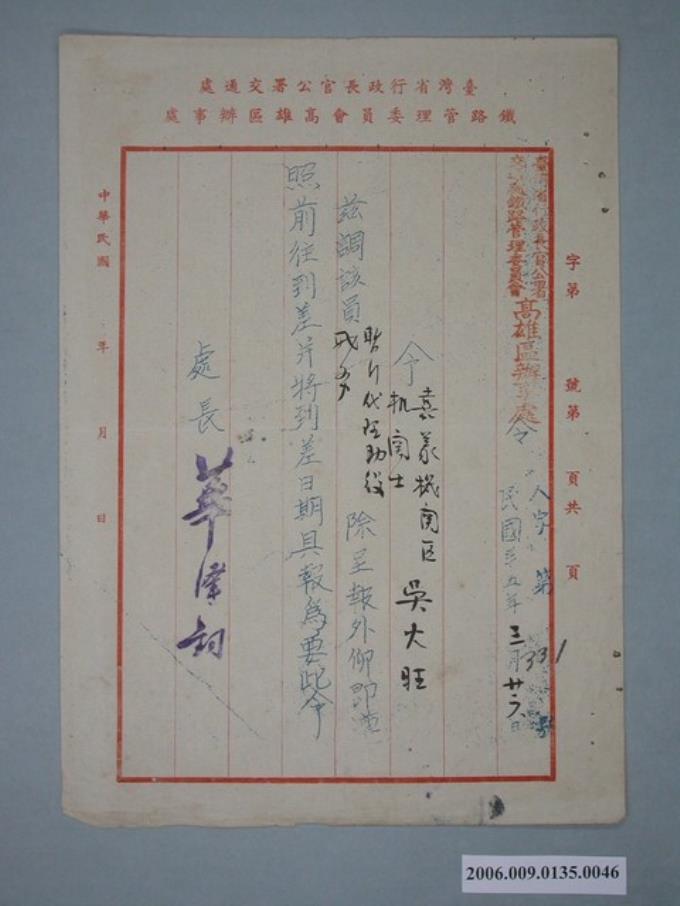 臺灣省行政長官公署交通處
鐵路管理委員會高雄區辦事處
字第　號第　頁共　頁
臺灣省行政長官公署
交通處鐵路管理委員會
高雄區辦事處令
人字第331號
民國卅五年三月廿六日
嘉義機關區
机関士
吳大旺
令
茲調該員
除呈報外仰即遵
照前往到差并將到差日期具報為要此令
處長
華澤鈞
中華民國　年　月　日
2006.009.0135.0046